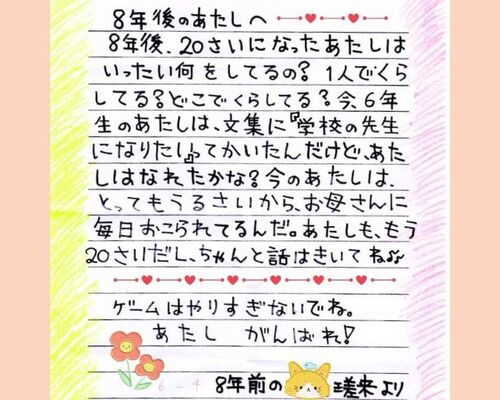 8年後のあたしへ
8年後、20さいになったあたしは
いったい何をしてるの?1人でくら
してる?どこでくらしてる?今、6年
生のあたしは、文集に『学校の先生
になりたい』ってかいたんだけど、あた
しはなれたかな?今のあたしは、
とってもうるさいから、お母さんに
毎日おこられてるんだ。あたしも、もう
20さいだし、ちゃんと話はきいてね♪♪
ゲームはやりすぎないでね。
あたし がんばれ!
6-4
8年前の 瑳来より